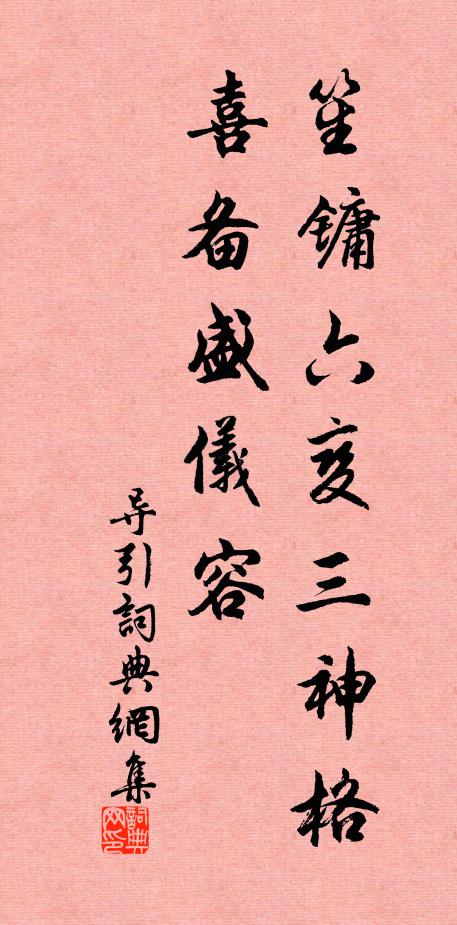 笙鏞六变三神格
喜备盛儀容
导引詞典網集
詞典网印